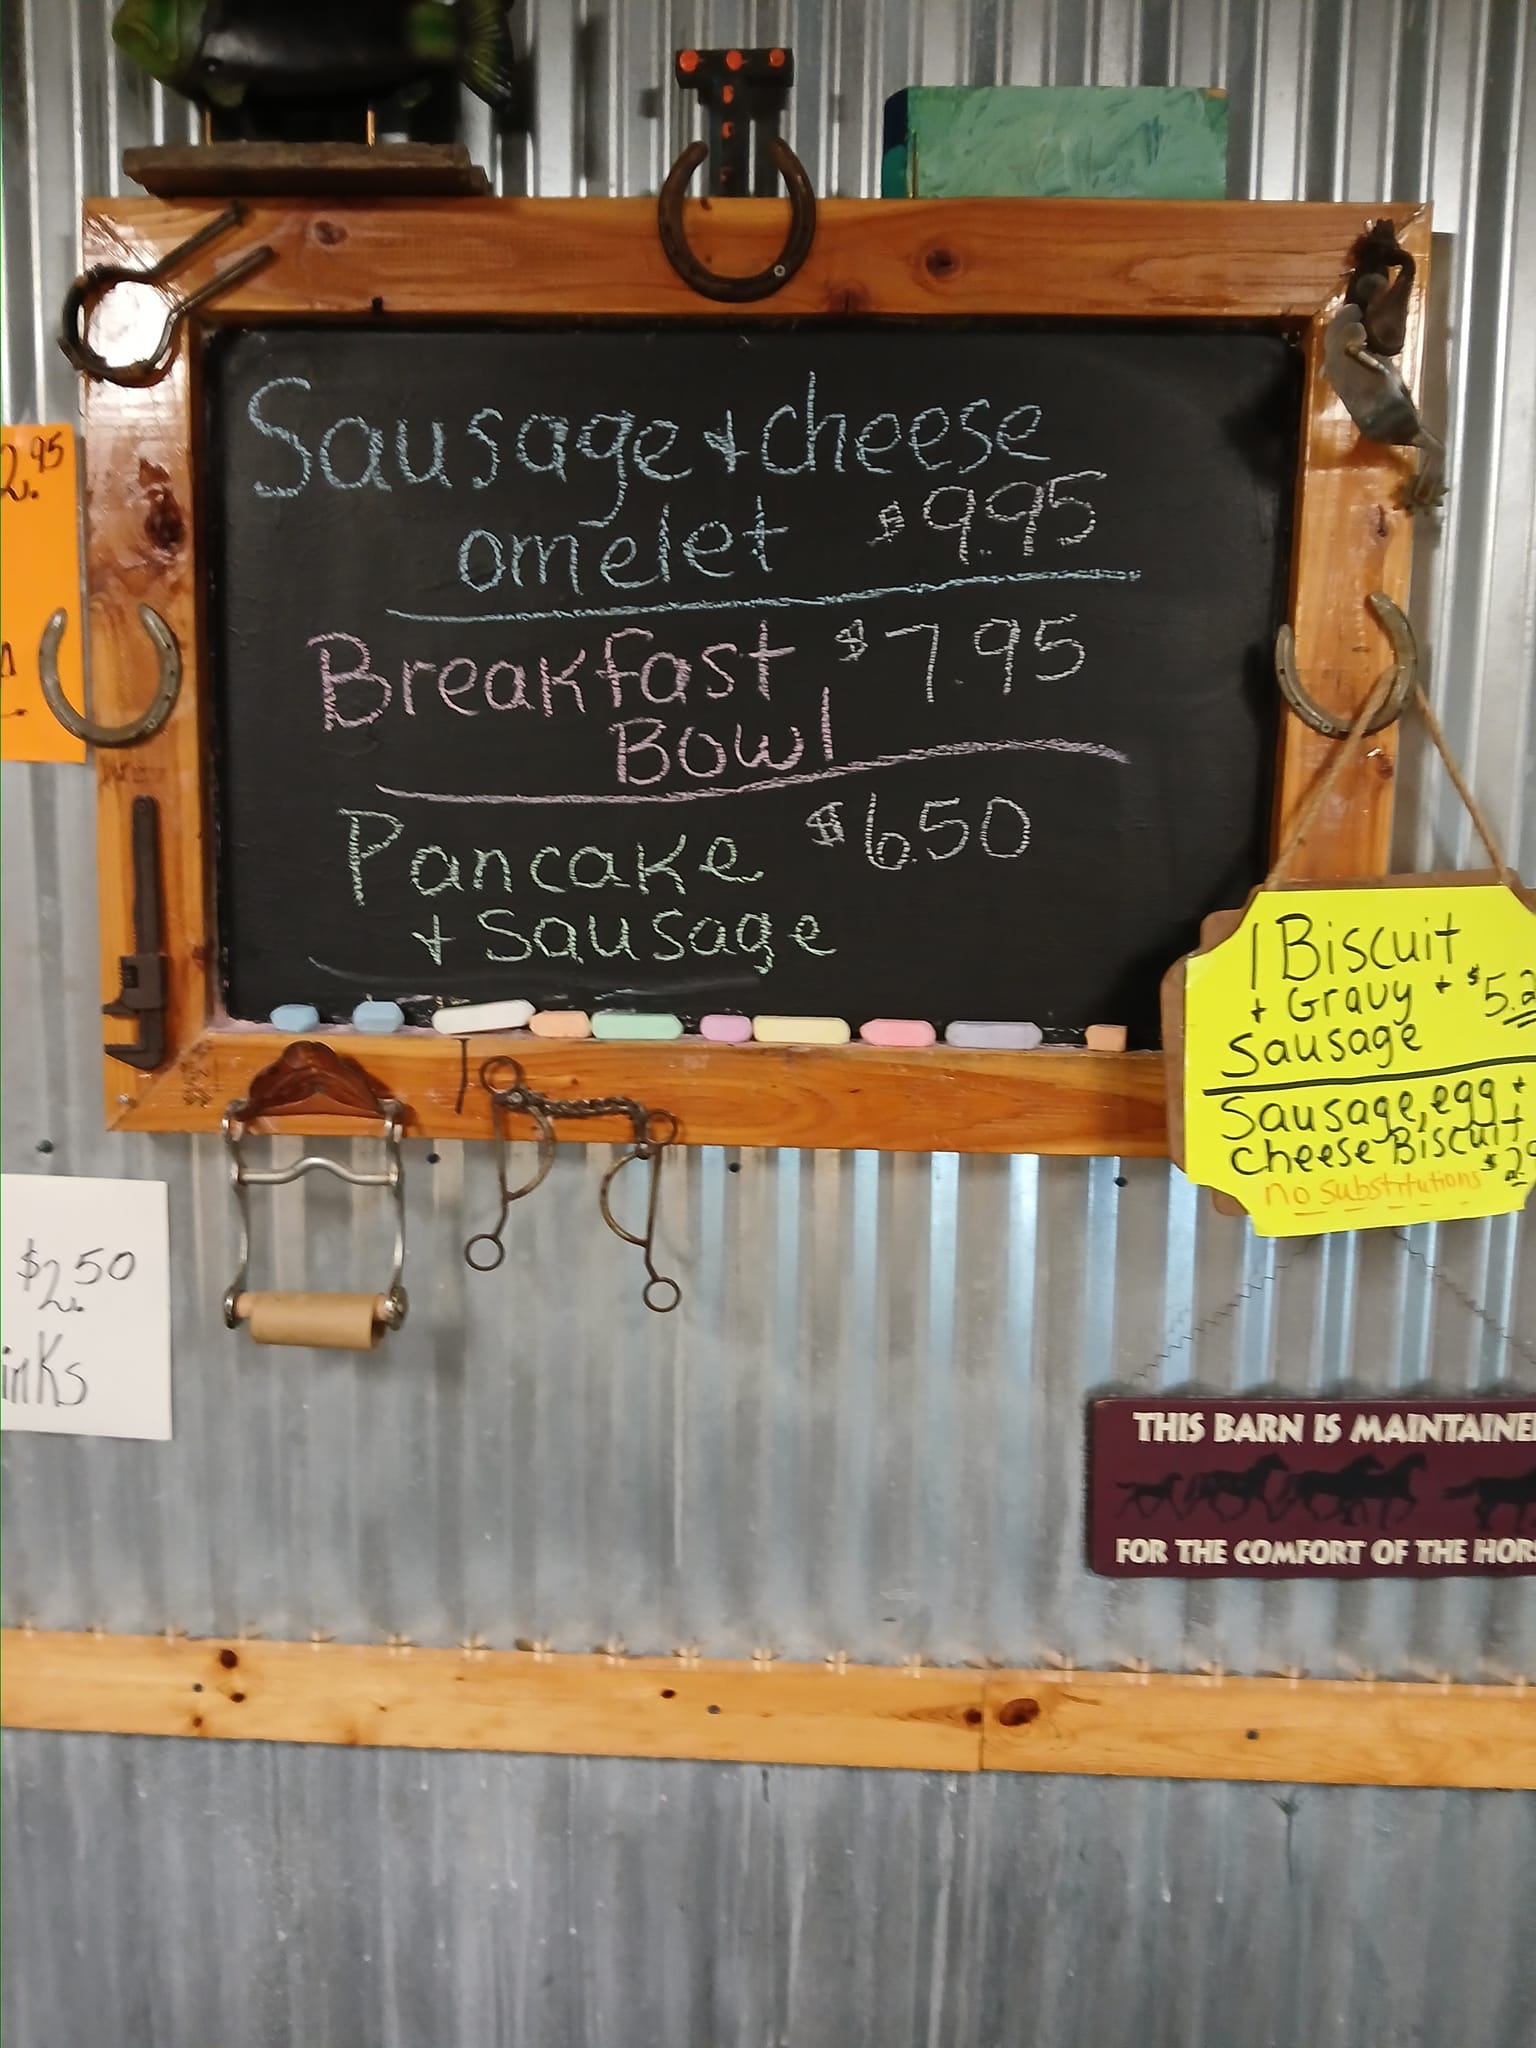 Sausage + cheese
omelet $9.95
Breakfast $7.95
Bowl
Pancake $6.50
+ Sausage
1 Biscuit
+ Gravy + $5.2
Sausage
Sausage, egg +
cheese Biscuit
no substitutions
2.95
$2.50
THIS BARN IS
FOR THE COMFORT OF THE